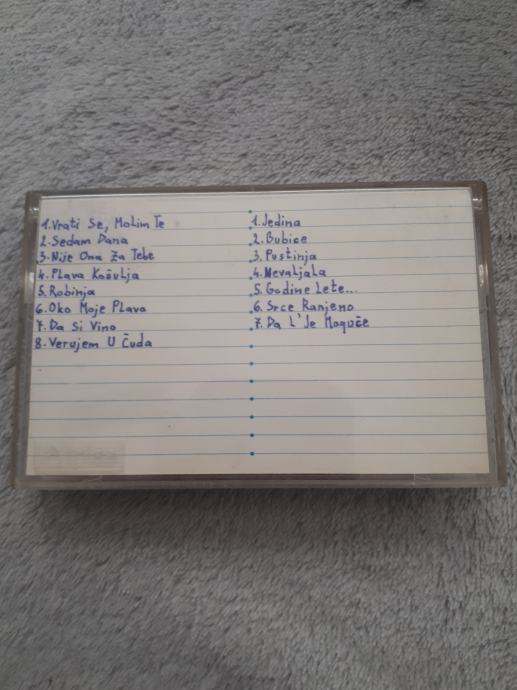 1. Vrati Se, Molim Te
2. Sedam Dana
3. Nije Ona Za Tebe
4. Plava Košulja
5. Robinja
6. Oko Moje Plavo
7. Da Si Vino
8. Verujem U Čuda
1. Jedina
2. Bubice
3. Pustinja
4. Nevaljala
5. Godine Lete...
6. Srce Ranjeno
7. Da L' Je Moguče